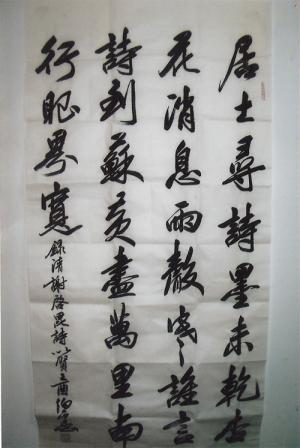 居士尋詩墨未乾杏
花消息雨聲寒誰言
詩到蘇黃盡萬里南
行眼界寬
錄清謝啓昆詩以賀乙酉伯